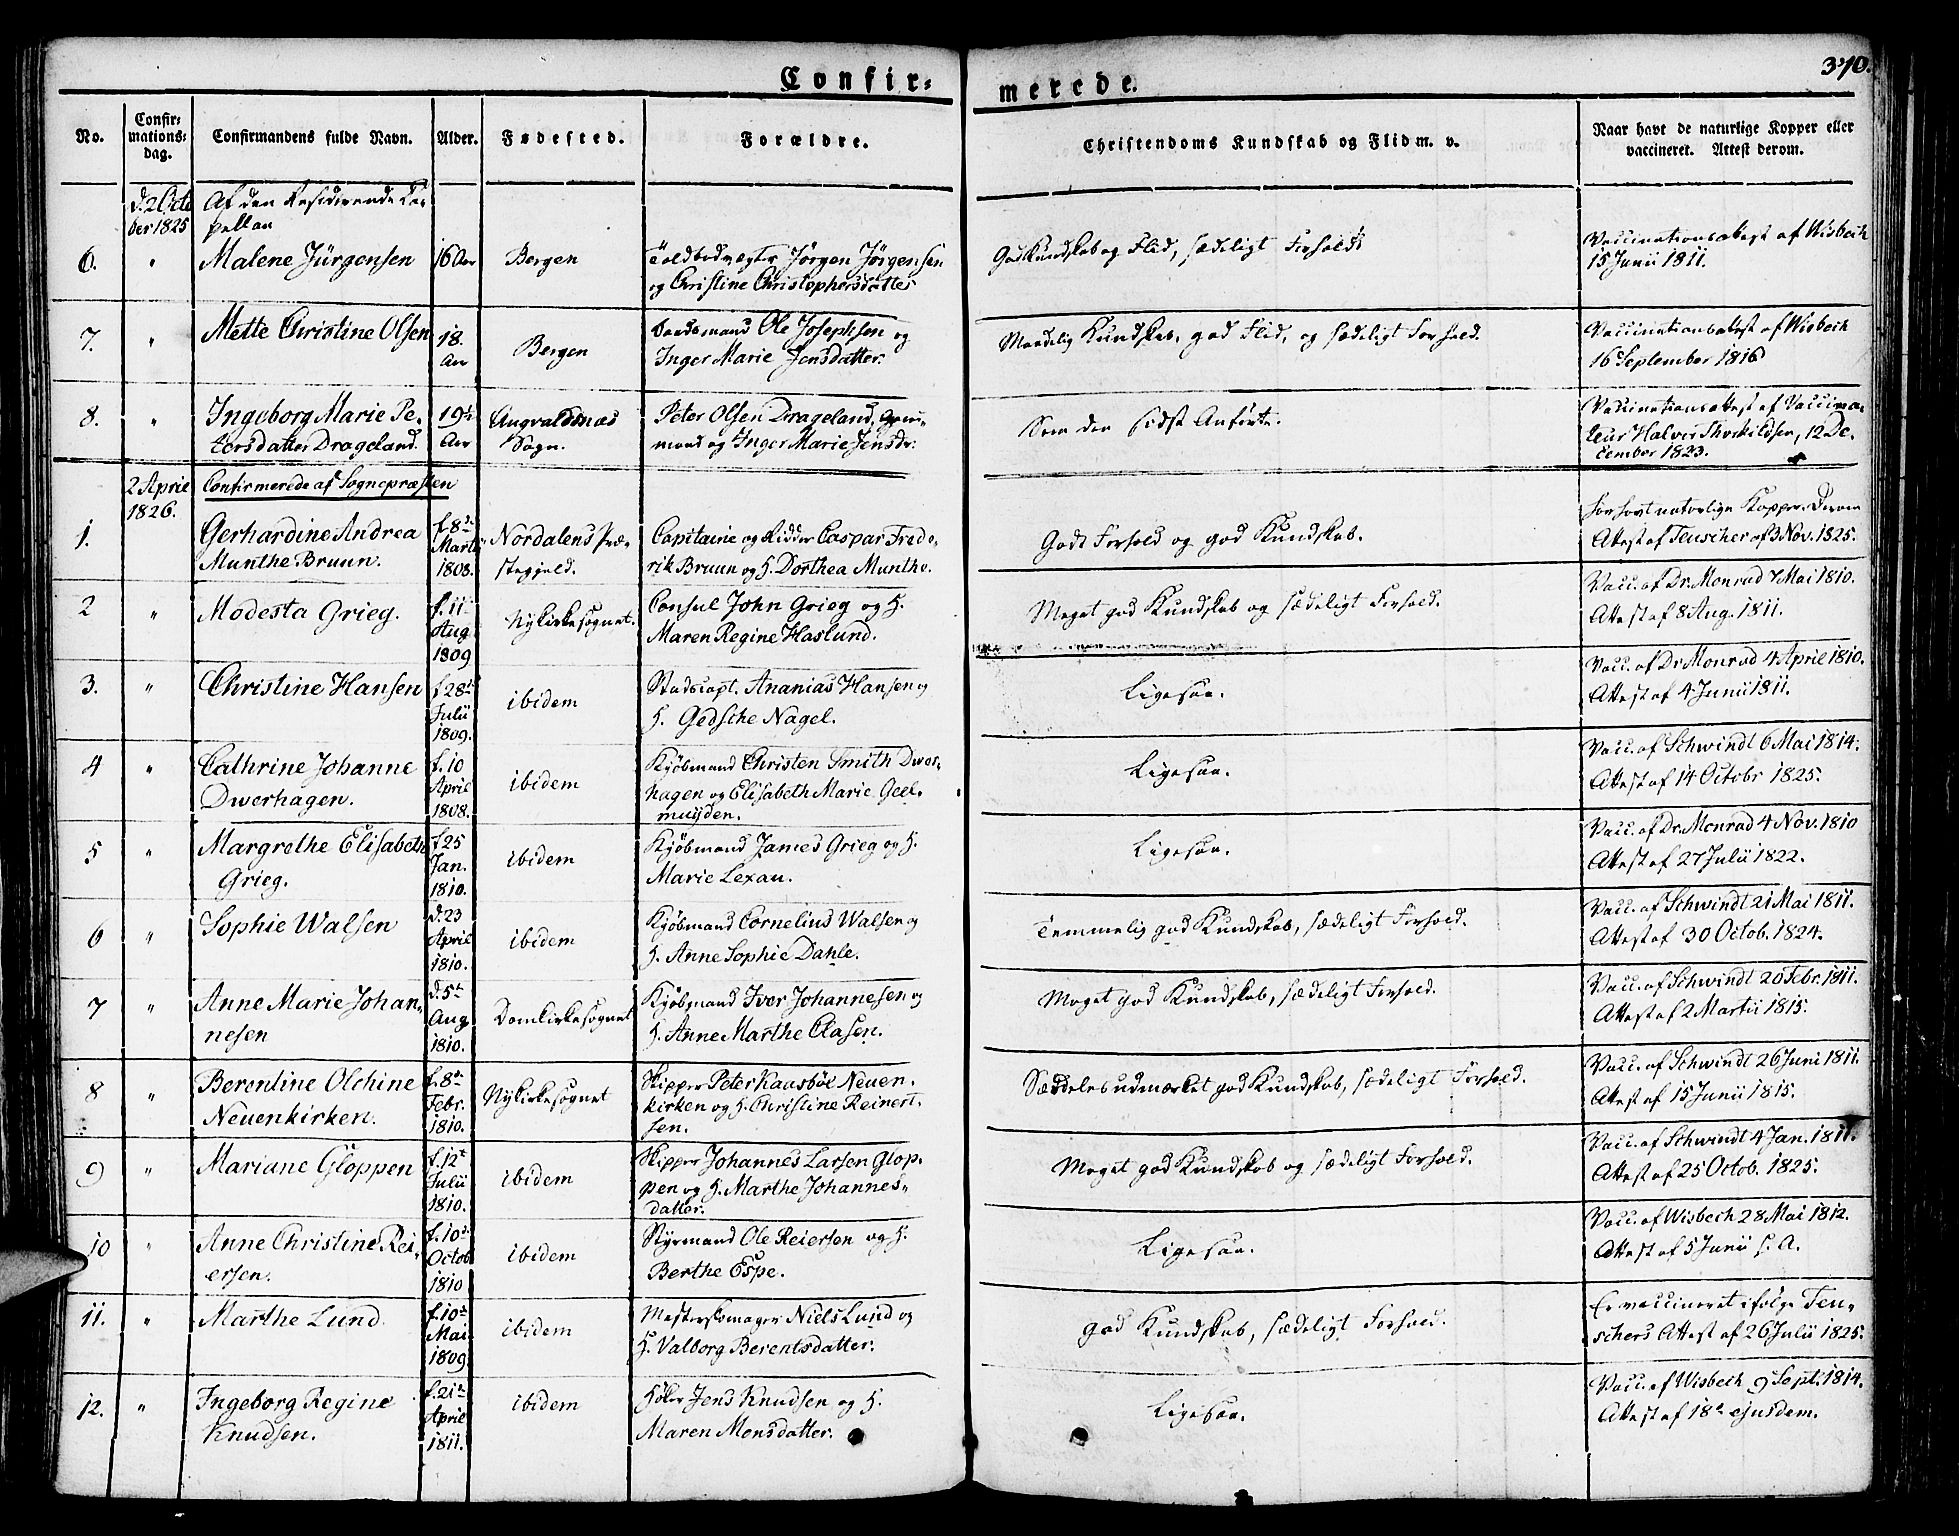 Confir=
merede.
370.
No.
Confir=
mations=
dag.
Confirmandens fulde Navn.
Alder.
Fødested.
Forældre.
Christendoms Kundskab og Flid m. v.
Naar havt de naturlige Kopper eller
vaccineret. Attest derom.
d. 2 Octo
ber 1825
Af den Residerende Ca-
pellan
6. " Malene Jürgensen 16 Aar Bergen
Toldbodvægter Jörgen Jörgensen
og Christine Christophersdatter
God Kundskab og Flid, sædeligt Forhold
Vaccinationsattest af Wisbech
15 Junii 1811.
7. " Mette Christine Olsen 18.
Aar
Bergen
Ole Josephsen og
Inger Marie Jensdatter.
Maadelig Kundskab, god Flid, og sædeligt Forhold.
Vaccinationsattest af Wisbech
16 September 1816
8. " Ingeborg Marie Pe-
tersdatter Drageland.
19
Aar
Augvaldsnæs
Sogn.
Peter Olsen Drageland,
mand og Inger Marie Jensdr.
Som den sidst Anförte.
Vaccinationsattest af Vaccina-
teur Halvor Thorkildsen, 12 De-
cember 1823.
2 April
1826.
Confirmerede af Sognepræsten
1. Gerhardine Andrea
Munthe Bruun.
f. 8de
Marts
1808.
Nordalens Præ-
stegjeld.
Capitaine og Ridder Caspar Frede-
rik Bruun og H. Dorthea Munthe.
Godt Forhold og god Kundskab.
har havt naturlige Kopper. Derom
Attest af Teuscher af 3 Nov. 1825.
2 " Modesta Grieg.
f. 11
Aug.
1809
Nykirkesognet.
Consul John Grieg og H.
Maren Regine Haslund.
Meget god Kundskab og sædeligt Forhold.
Vacc. af Dr. Monrad 7 Mai 1810.
Attest af 8 Aug. 1811.
3. " Christine Hansen
f. 28
Julii
1809.
ibidem
Stadscapt. Ananias Hansen og
H. Gedsche Nagel.
Ligesaa.
Vacc. af Dr. Monrad 4 April 1810.
Attest af 4 Junii 1811.
4 " Cathrine Johanne
Dwerhagen.
f. 10
April
1808.
ibidem
Kjøbmand Christen Smith Dwer-
hagen og Elisabeth Marie Geel-
muijden.
Ligesaa.
Vacc. af Schwindt 6 Mai 1814.
Attest af 14 Octobr 1825.
5 " Margrethe Elisabeth
Grieg.
f. 25
Jan.
1810.
ibidem
Kjøbmand James Grieg og H.
Marie Lexau.
Ligesaa.
Vacc. af Dr. Monrad 4 Nov. 1810
Attest af 27 Julii 1822.
6 " Sophie Walsen
d. 23
April
1810.
ibidem
Kjøbmand Cornelius Walsen og
H. Anne Sophie Dahle.
Temmelig god Kundskab, sædeligt Forhold.
Vacc. af Schwindt 21 Mai 1811.
Attest af 30 Octob. 1824.
7 " Anne Marie Johan-
nesen
d. 5te
Aug.
1810.
Domkirkesognet
Kjøbmand Iver Johannesen og
H. Anne Marthe Clasen.
Meget god Kundskab, sædeligt Forhold.
Vacc. af Schwindt 20 Febr. 1811.
Attest af 2 Martii 1815.
8 " Berentine Olchine
Neuenkirken.
f. 8de
Febr.
1810.
Nykirkesognet
Skipper Peter Kausböl Neuen-
kirken og H. Christine Reinert-
sen.
Særdeles udmærket god Kundskab, sædeligt Forhold.
Vacc. af Schwindt 26 Juni 1811.
Attest af 15 Junii 1815.
9 " Mariane Gloppen
f. 12te
Julii
1810.
ibidem
Skipper Johannes Larsen Glop-
pen og H. Marthe Johannes-
datter.
Meget god Kundskab og sædeligt Forhold.
Vacc. af Schwindt 4 Jan. 1811.
Attest af 25 Octob. 1825.
10 " Anne Christine Rei-
ersen.
f. 10de
Octob
1810
ibidem
Styrmand Ole Reiersen og H.
Berthe Espe.
Ligesaa.
Vacc. af Wisbech 28 Mai 1812.
Attest af 5 Junii s. A.
11. " Marthe Lund
f. 10de
Mai
1809
ibidem
Mesterskomager Niels Lund og
H. Valborg Berentsdatter.
god Kundskab, sædeligt Forhold.
Er vaccineret ifölge Teu-
schers Attest af 26 Julii 1825.
12. " Ingeborg Regine
Knudsen.
f. 21de
April
1811.
ibidem
Jens Knudsen og H.
Maren Monsdatter.
Ligesaa.
Vacc. af Wisbech 9 Sept. 1814.
Attest af 18de ejusdem.